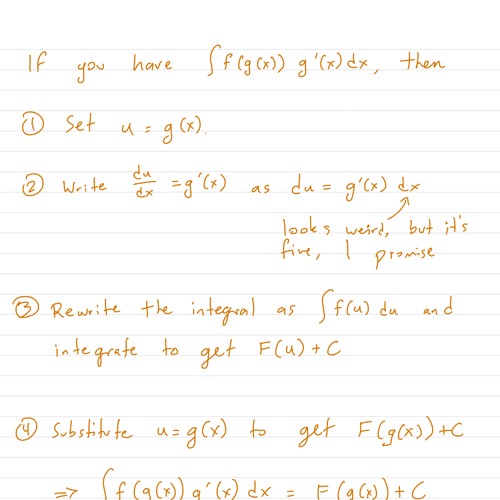 If you have ∫f(g(x)) g'(x) dx, then
① Set u = g(x).
② Write du/dx = g'(x) as du = g'(x) dx
looks weird, but it's
fine, I promise
③ Rewrite the integral as ∫f(u) du and
integrate to get F(u) + C
④ Substitute u = g(x) to get F(g(x)) + C
=> ∫f(g(x)) g'(x) dx = F(g(x)) + C